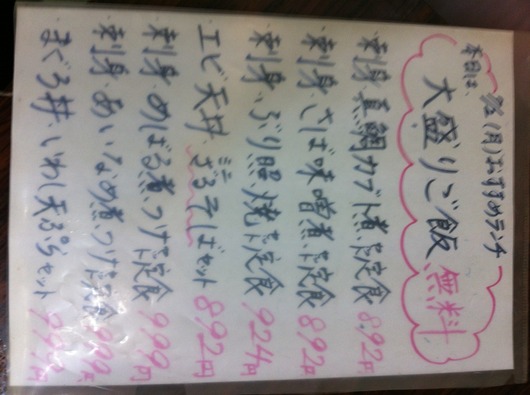 本日は、
7/2(月)おすすめランチ
大盛りご飯 無料
・刺身、真鯛カブト煮定食 892円
・刺身、さば味噌煮定食 892円
・刺身、ぶり照焼き定食 924円
・エビ天丼、ミニざるそばセット 892円
・刺身、めばる煮つけ定食 999円
・刺身、あいなめ煮つけ定食 999円
・まぐろ丼、いわし天ぷらセット 999円